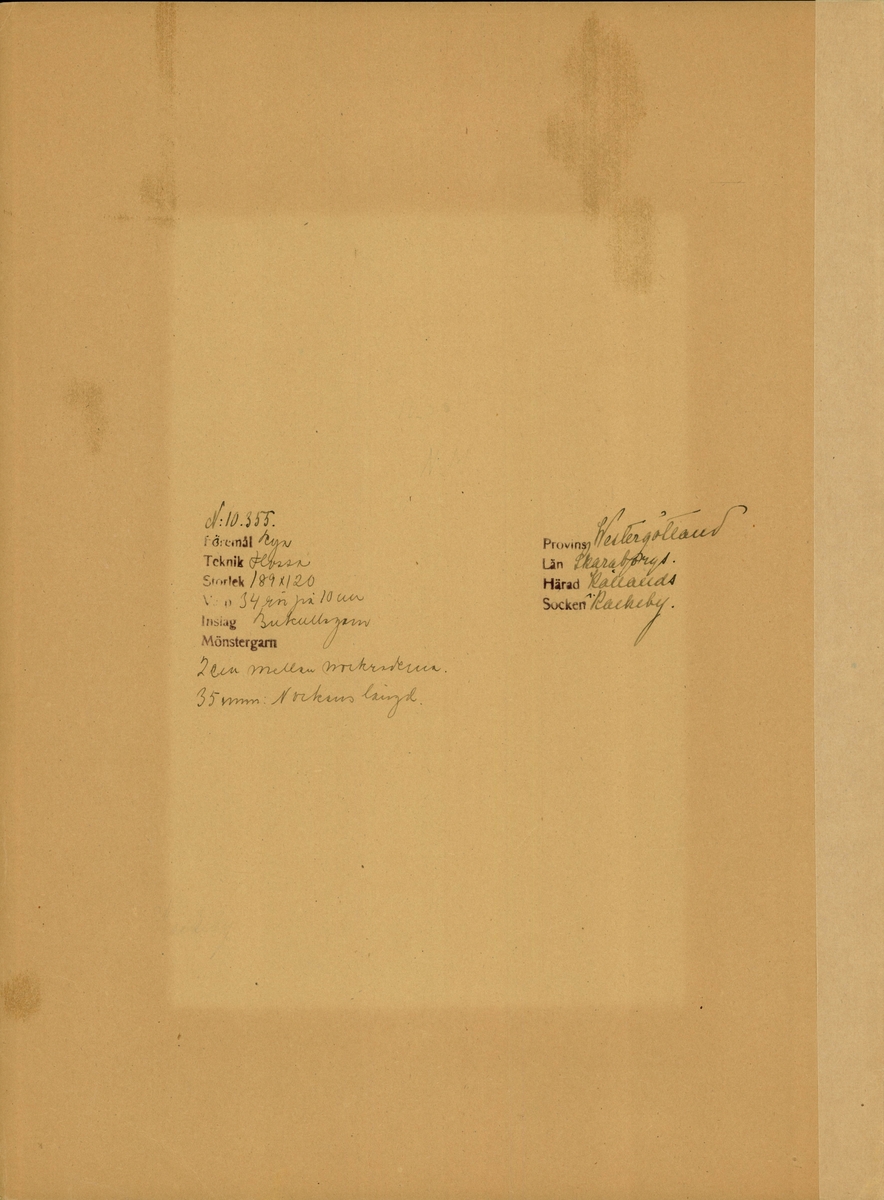 N: 10.355.
Föremål Rya
Teknik Flossa
Storlek 189 x 120
34 på 10 cm
Inslag
Mönstergarn
2 cm mellan nockraderna.
35 mm: Nockens längd.
Provins Westergötland
Län Skaraborgs.
Härad Kållands
Socken Rackeby.